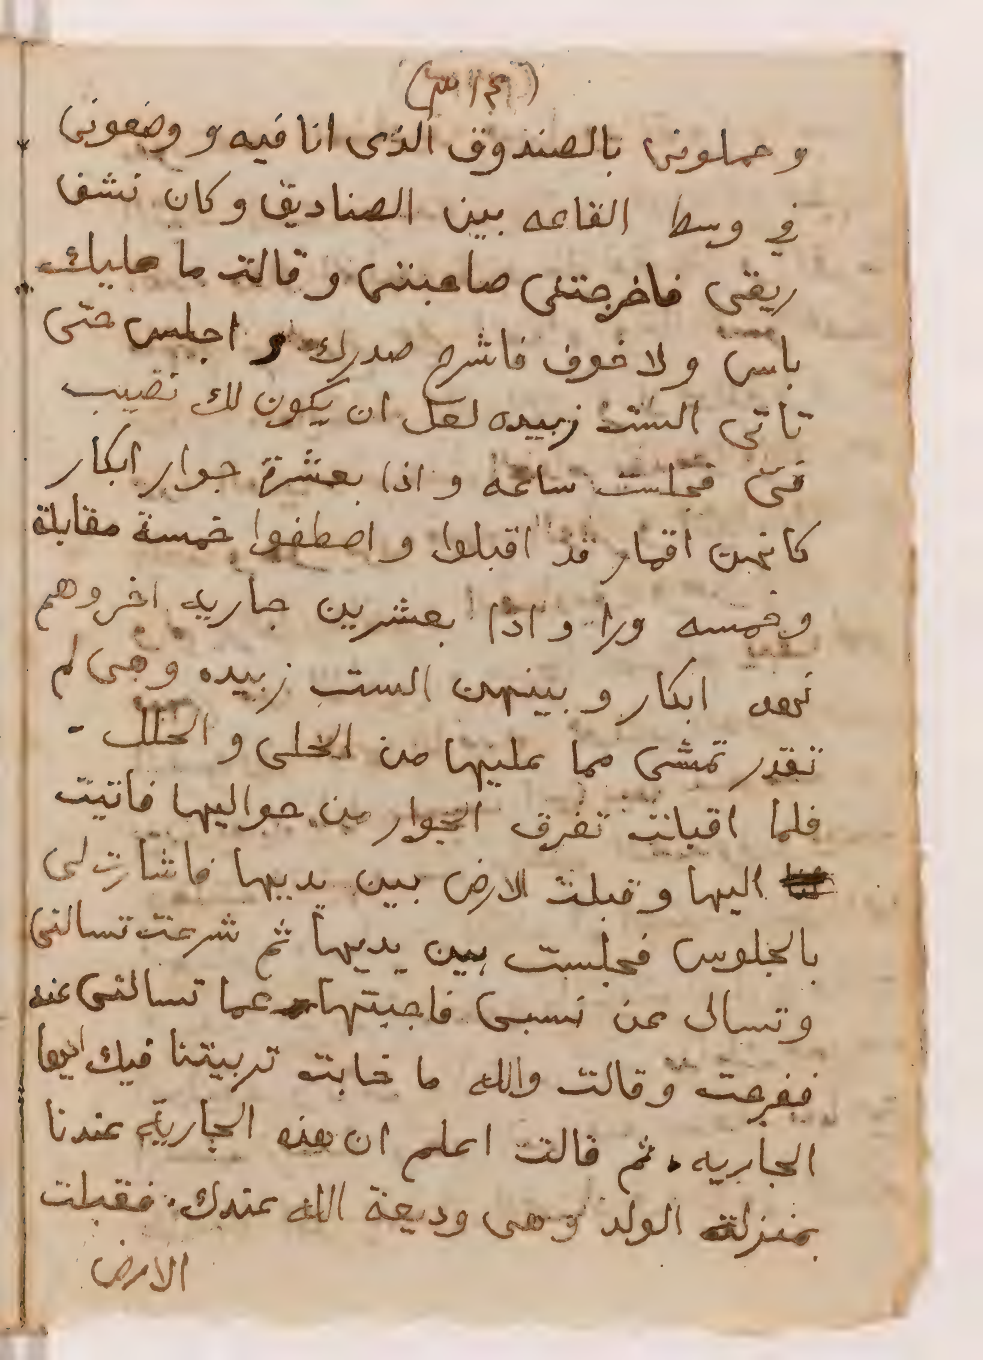 وحملونى بالصندوق الذى انا فيه و وضعونى
في وسط القاعه بين الصناديق وكان نشف
ريقى فاخرجتنى صاحبتى وقالت ما عليك
باس ولا خوف فاشرح صدرك و اجلس حتى
تاتى الست زبيده لعل ان يكون لك نصيب
فىّ فجلست ساعه واذا بعشرة جوار ابكار
كانهن اقمار قد اقبلوا واصطفوا خمسة مقابلة
وخمسه ورا واذا بعشرين جاريه اخر وهم
نهد ابكار وبينهن الست زبيده وهى لم
تقدر تمشى مما عليها من الحلى والحلل -
فلما اقبلت تفرق الجوار من حواليها فاتيت
اليها وقبلت الارض بين يديها فاشارت لى
بالجلوس فجلست بين يديها ثم شرعت تسالنى
وتسال عن نسبى فاجبتها عما تسالنى عنه
ففرحت وقالت والله ما خابت تربيتنا فيك ايها
الجاريه . ثم قالت اعلم ان هذه الجارية عندنا
بمنزلة الولد وهى وديعة الله عندك . فقبلت
الارض